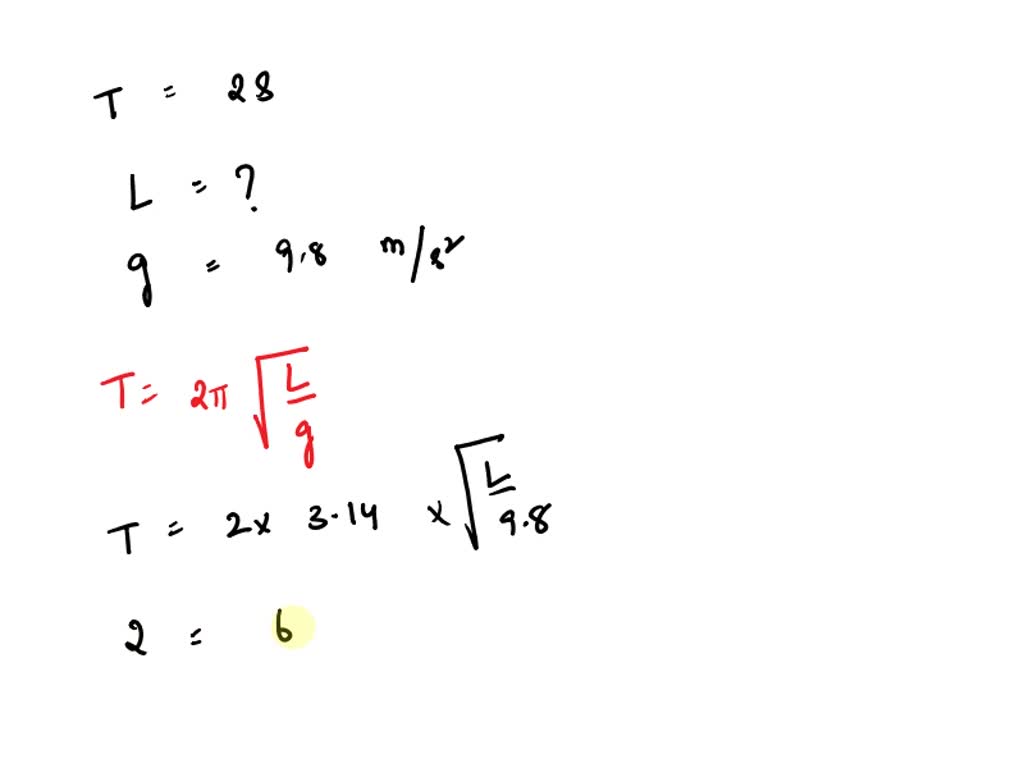 T = 2s
L = ?
g = 9.8 m/s²
T = 2π √(L/g)
T = 2 x 3.14 x √(L/9.8)
2 = 6